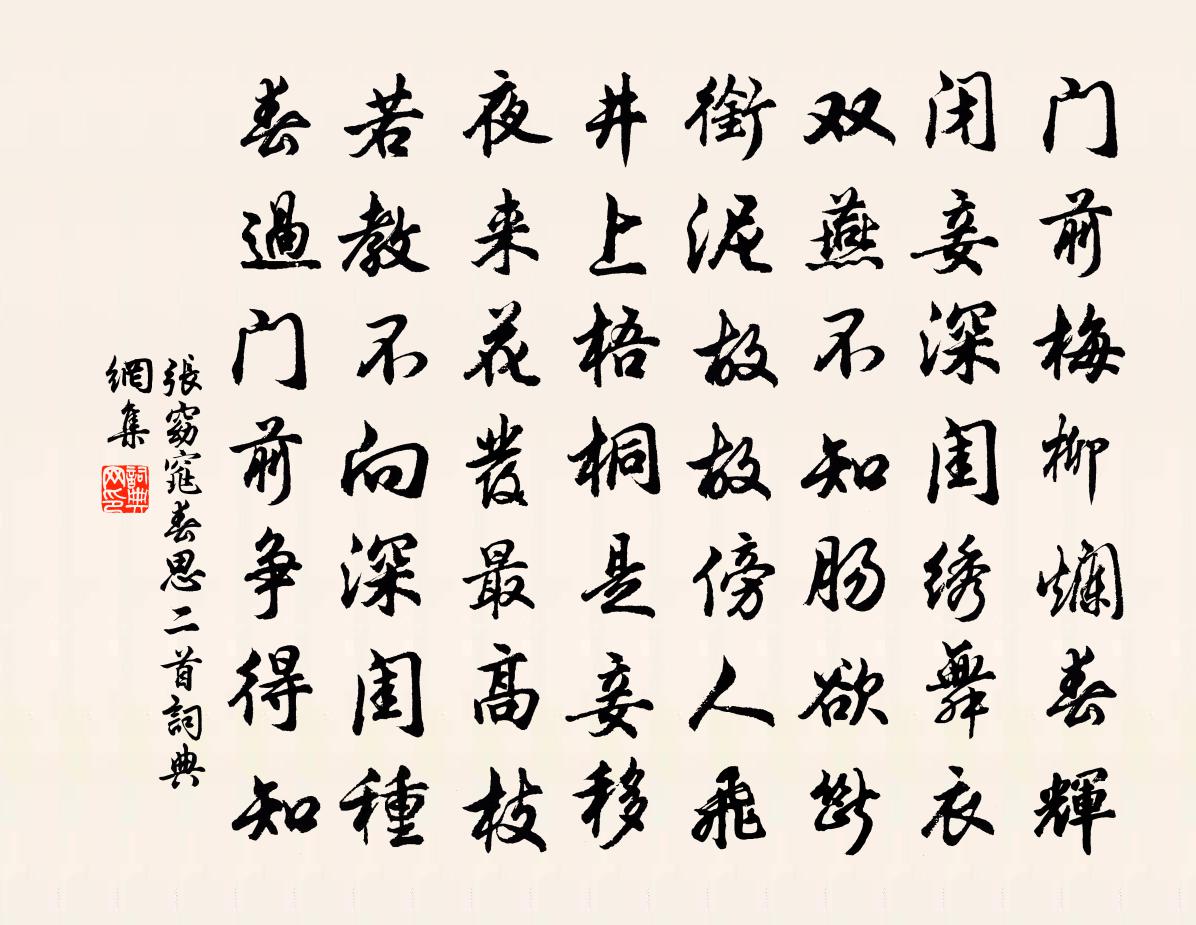 门前梅柳爛春輝
闭妾深闺绣舞衣
双燕不知肠欲斷
衔泥故故傍人飛
井上梧桐是妾移
夜来花發最高枝
若教不向深闺種
春過门前争得知
張窈窕春思二首詞典
網集
詞典网印